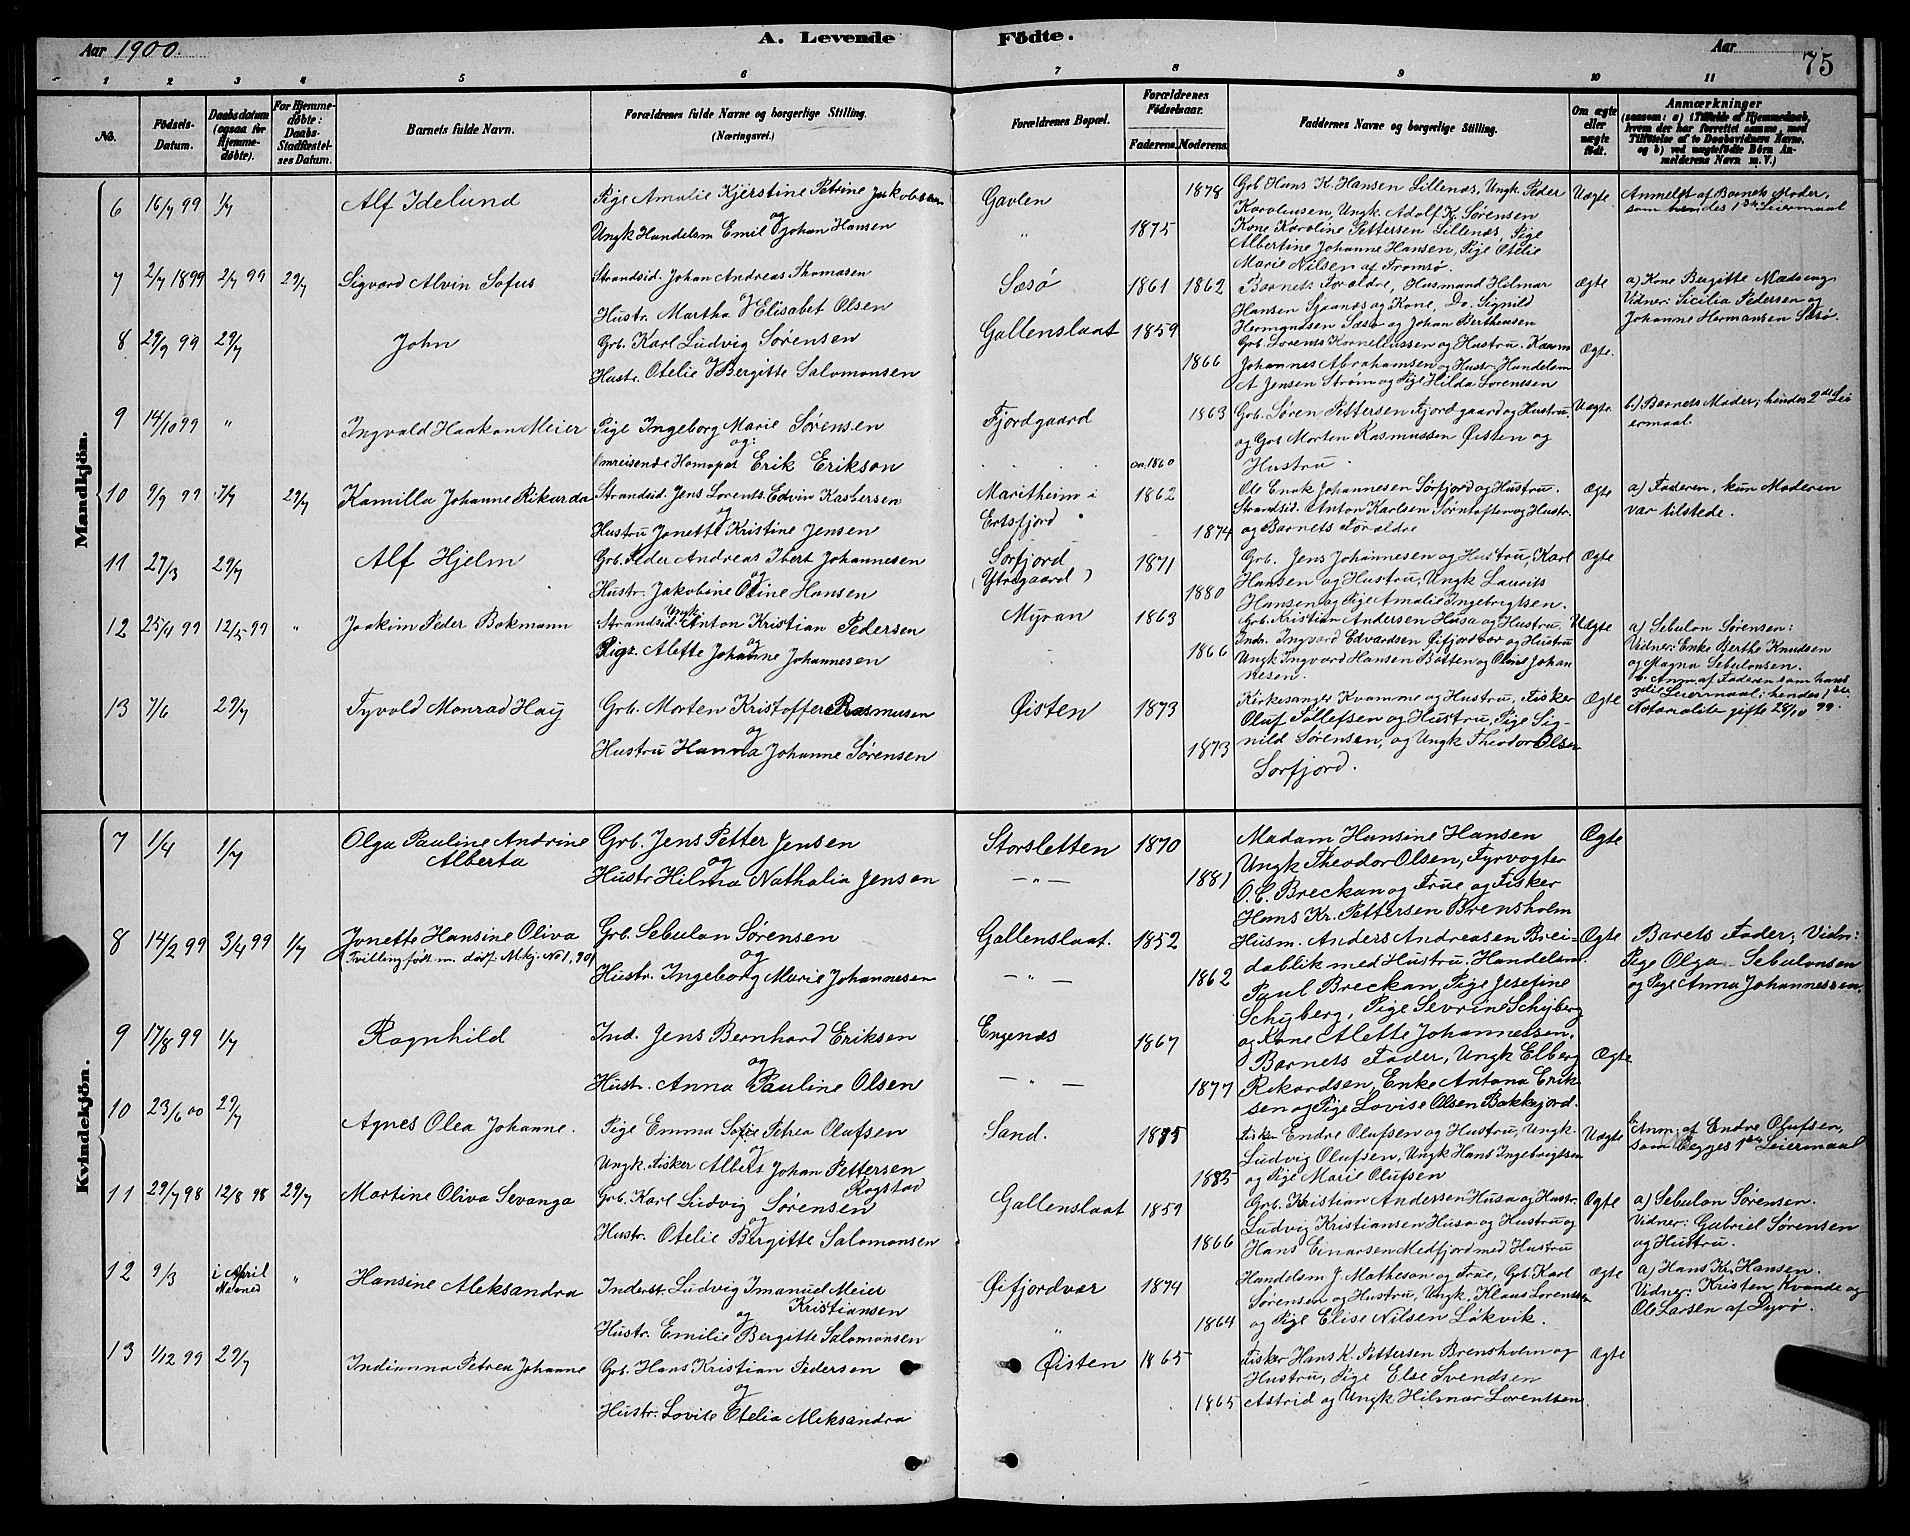 Aar 1900.
A. Levende Födte.
Aar
75
1 2 3 4 5 6 7 8 9 10 11
No.
Födsels-Datum.
Daabsdatum (ogsaa for Hjemmedöbte).
For Hjemmedöbte: Daabs-Stadfæstelses Datum.
Barnets fulde Navn.
Forældrenes fulde Navne og borgerlige Stilling. (Næringsvei.)
Forældrenes Bopæl.
Forældrenes Födselsaar.
Faderens. Moderens.
Faddernes Navne og borgerlige Stilling.
Om ægte eller uægte födt.
Anmærkninger
(saasom: a) i Tilfælde af Hjemmedaab, hvem der har forrettet samme, med Tilföielse af to Daabsvidners Navne. og b) ved uægtefödte Börn Anmelderens Navn m. V.)
Mandkjön.
6 16/7 99 1/7 Alf Idelund
Pige Amalie Kjerstine Petrine Jakobsen
og
Ungk Handelsm Emil Johan Hansen
Gavlen
"
1875 1878
Grb Hans K. Hansen Lillenæs, Ungk. Peder
Karoliusen, Ungk. Adolf K. Sørensen
Kone Karoline Pettersen Lillenæs, Pige
Albertine Johanne Hansen, Pige Otelie
Marie Nilsen af Tromsø.
Uægte
Anmeldt af Barnets Moder,
som hendes 1ste Leiermaal
7 2/7 1899 2/7 99 29/7 Sigvard Alvin Sofus
Strandsid. Johan Andreas Thomasen
og
Hustr. Martha Elisabet Olsen
Sæsø
1861 1862
Barnets Forældre, Husmand Hilmar
Hansen Sjaanæs og Kone, Do. Signild
Hermandsen Sæsø og Johan Berthensen
Ægte
a) Kone Bergitte Madsen,
Vidner: Sicilia Pedersen og
Johanne Hermansen Sæsø.
8 29/9 99 29/7 John
Grb. Karl Ludvig Sørensen
og
Hustr. Otelie Bergitte Salomonsen
Gallenslaat
1859 1866
Grb. Lorents Korneliussen og Hustru. Kaarm
Johannes Abrahamsen og Hustr. Handelsm
A Jensen Strøm og Pige Hilda Lorentsen
Ægte.
9 14/10 99 " Ingvald Haakon Meier
Pige Ingeborg Marie Sørensen
og:
Omreisende Homøpat Erik Erikson
Fjordgaard
ca. 1860 1863
Grb. Søren Pettersen Fjordgaard og Hustru,
og Grb Morten Rasmussen Øisten og
Hustru.
Uægte.
b.) Barnets Moder; hendes 2det Lei
ermaal.
10 9/9 99 7/9 29/7 Kamilla Johanne Rikarda
Strandsid. Jens Lorents Edvin Kasbersen
og
Hustru Jonette Kristine Jensen
Maritheim i
Ertsfjord
1862 1874
Ole Enok Johannesen Sørfjord og Hustru.
Strandsid. Anton Karlsen, Sørntoften og Hustr.
og Barnets Forældre
Ægte
a) Faderen, kun Moderen
var tilstede.
11 27/3 29/7 Alf Hjelm
Grb. Peder Andreas Ibert Johannesen
og
Hustr. Jakobine Oline Hansen
Sørfjord
(Ytregaard)
1871 1880
Grb. Jens Johannesen og Hustru, Karl
Hansen og Hustru, Ungk Laurits
Hansen og Pige Amalie Ingebrigtsen.
Ægte
12 25/4 99 12/5 99 " Joakim Peder Bokmann
Strandsid. Ungk. Anton Kristian Pedersen
og
Pige. Alette Johanne Johannesen
Myran
1863 1866
Grb. Kristian Andersen Husa og Hustru.
Indr. Ingvard Edvardsen Øifjordvær og Hustru
Ungk Ingvard Hansen Botten og Oline Johan
nesen.
Uægte
a) Sebulon Sørensen:
Vidner: Enke Berthe Knudsen
og Magna Sebulonsen.
b. Anm. af Faderen som hans
2det Leiermaal; hendes 1ste
Notorialiter gifte 28/10 99.
13 7/6 29/7 Tyvold Monrad Haij
Grb. Morten Kristoffer Rasmusen
og
Hustru Hanna Johanne Sørensen
Øisten
1873 1873
Kirkesanger Kvamme og Hustru, Fisker
Oluf Tollefsen og Hustru, Pige Sig-
nild Sørensen, og Ungk Theodor Olsen
Sørfjord.
Ægte
Kvindekjön.
7 1/4 1/7 Olga Pauline Andrine
Alberta
Grb. Jens Petter Jensen
og
Hustr Hilma Nathalia Jensen
Storsletten
— " —
1870 1881
Madam Hansine Hansen
Ungk Theodor Olsen, Fyrvogter
O. C. Breckan og Frue og Fisker
Hans Kr. Pettersen Brensholm
Ægte
8 14/2 99 3/4 99 1/7 Jonette Hansine Oliva
Tvilling født m. dødf. Mkj. No 1, 901
Grb. Sebulon Sørensen
og
Hustr. Ingeborg Marie Johannesen
Gallenslaat.
— " —
1852 1862
Husm. Anders Andreasen Brei-
dablik med Hustru. Handelsm.
Paul Breckan, Pige Jesefine
Schyberg, Pige Sevrine Schyberg
og Kone Alette Johannessen.
Ægte
Barets Fader; Vidn:
Pige Olga Sebulonsen
og Pige Anna Johannessen.
9 17/8 99 1/7 Ragnhild
Ind. Jens Bernhard Eriksen
og
Hustr. Anna Pauline Olsen
Engenæs
— " —
1867 1877
Barnets Fader, Ungk Elberg
Rikardsen, Enke Antona Erik-
sen og Pige Lovise Olsen Bakkejord.
Ægte
10 23/6 00 29/7 Agnes Olea Johanne.
Pige Emma Sofie Petrea Olufsen
og
Ungk. Fisker Albert Johan Pettersen
Rogstad
Sand.
1875 1885
Fisker Endre Olufsen og Hustru, Ungk.
Ludvig Olufsen, Ungk Hans Ingebrigtsen
og Pige Marie Olufsen
Uægte
b. Anm. af Endre Olufsen,
som Begges 1ste Leiermaal
11 29/7 98 12/8 98 29/7 Martine Oliva Sevanga
Grb. Karl Ludvig Sørensen
og
Hustr. Otelie Bergitte Salomonsen
Gallenslaat
1859 1866
Grb. Kristian Andersen Husa og Hustr.
Ludvig Kristiansen Husa og Hustru og
Hans Einarsen Medfjord med Hustru
Ægte
a) Sebulon Sørensen.
Vidner: Gabriel Sørensen
og Hustru.
12 9/3 i April Maaned " Hansine Aleksandra
Inderst. Ludvig Imanuel Meier
Kristiansen
og
Hustr. Emilie Bergitte Salomonsen
Øifjordvær
"
1874 1864
Handelsm J. Matheson og Frue, Grb. Karl
Sørensen og Hustru, Ungk. Klaus Lorentsen
og Pige Elise Nilsen Løkvik.
Ægte
a) Hans Kr. Hansen.
Vidner: Kristen Kvande og
Ole Larsen af Dyrø.
13 1/12 99 29/7 Indianna Petrea Johanne
Grb. Hans Kristian Pedersen
og
Hustr. Lovise Otelia Aleksandra
Øisten
1865 1865
Fisker Hans K. Pettersen Brensholm og
Hustru, Pige Else Svendsen
Astrid og Ungk Hilmar Lorentsen.
Ægte